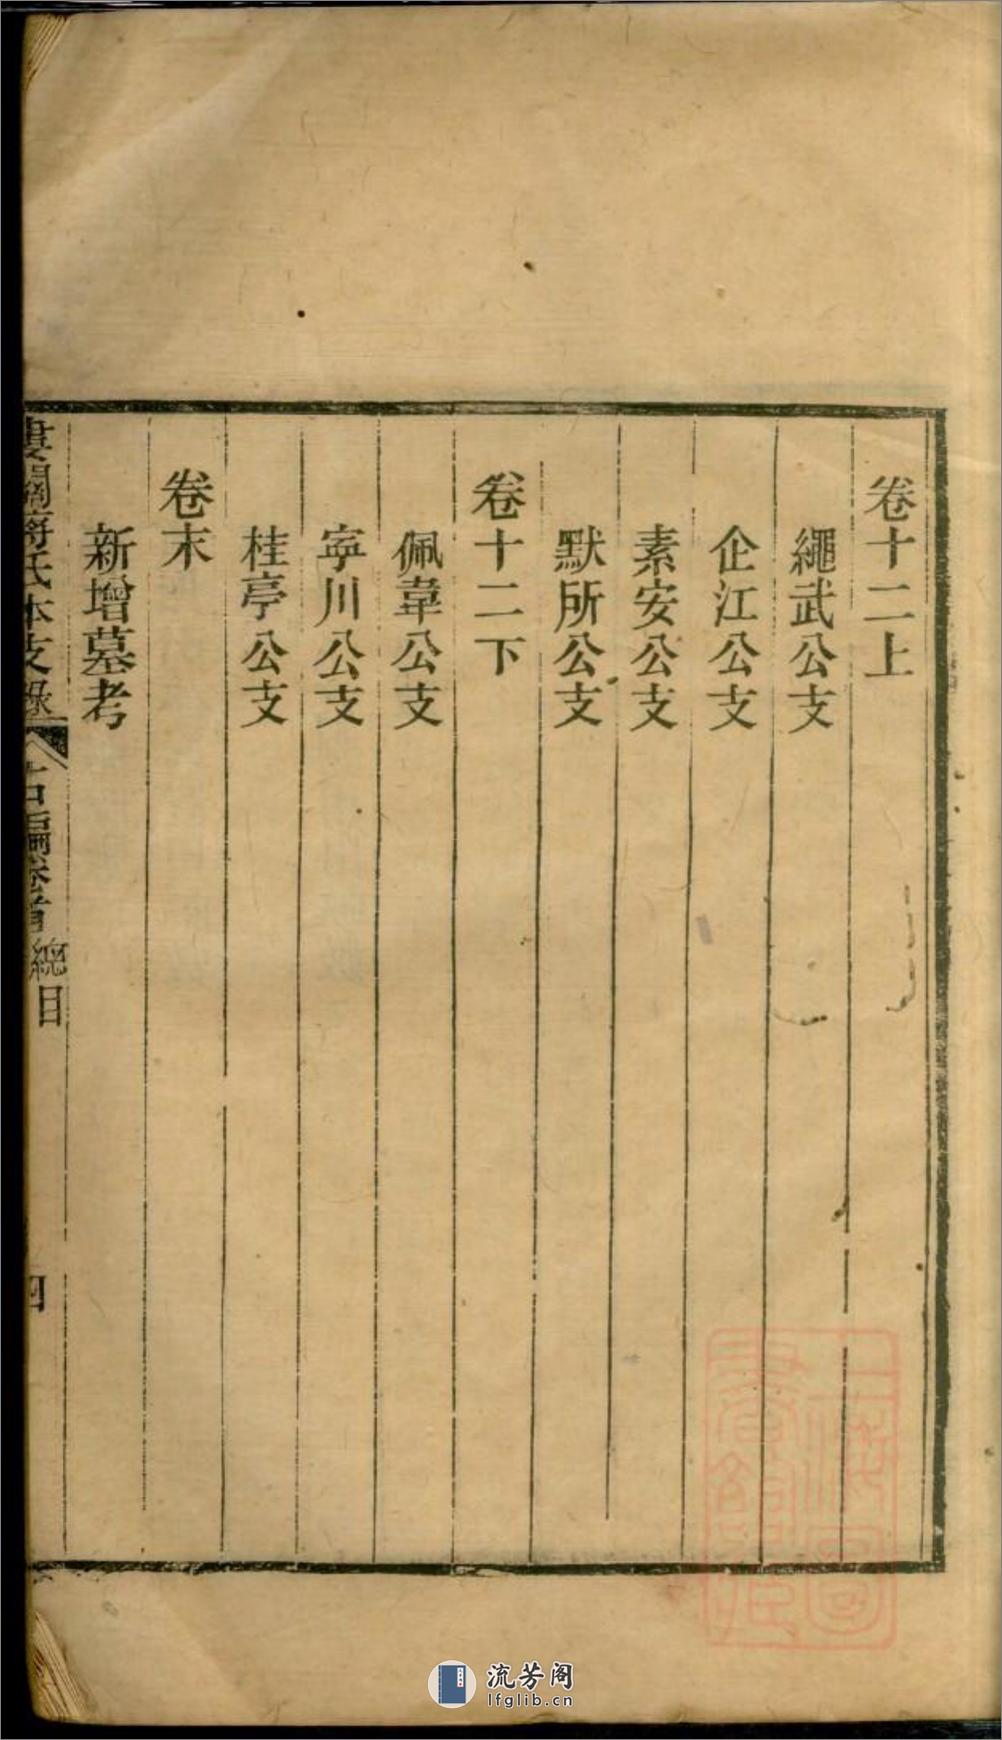 卷十二上
繩武公支
企江公支
素安公支
默所公支
卷十二下
佩韋公支
寜川公支
桂亭公支
卷末
新增墓考
婁關蔣氏本支錄
右編卷首
總目
四
上海圖
書館藏
流芳阁
lfglib.cn